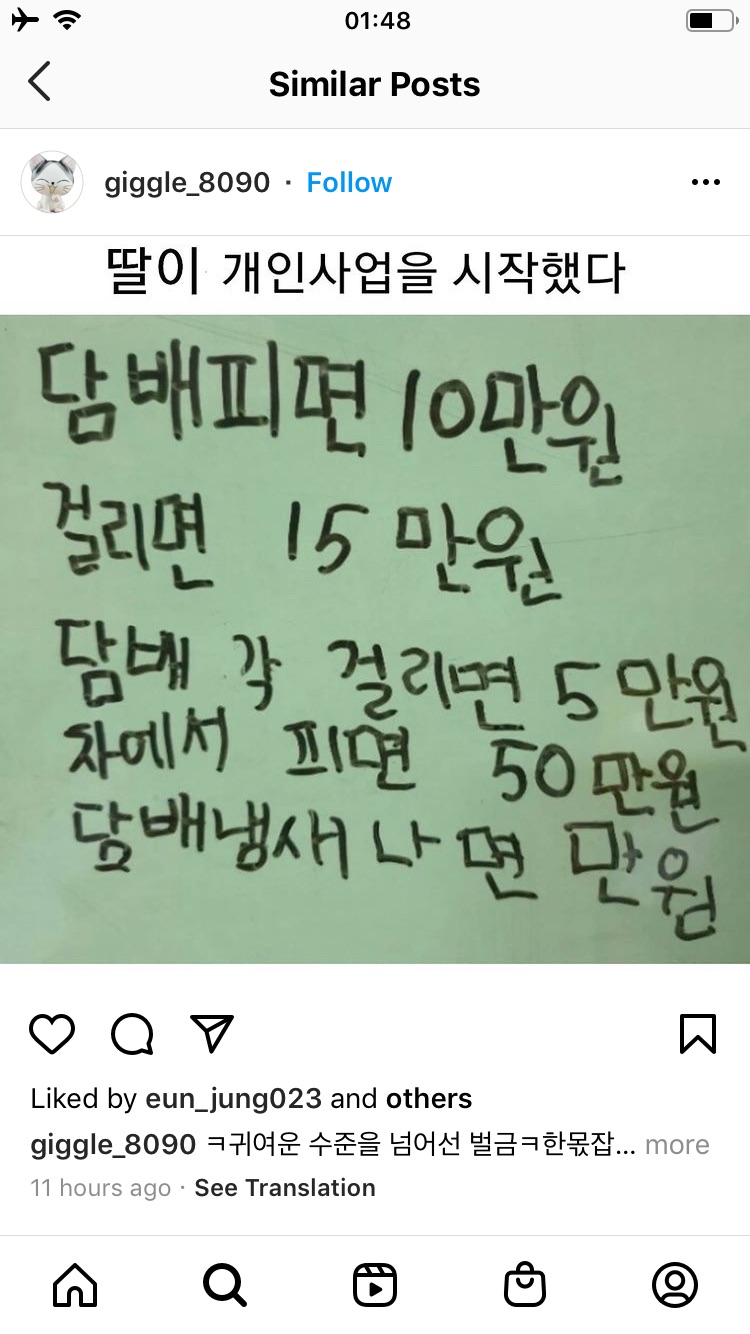 01:48
Similar Posts
giggle_8090 · Follow
딸이 개인사업을 시작했다
담배피면 10만원
걸리면 15만원
담배 각 걸리면 5만원
차에서 피면 50만원
담배냄새 나면 만원
Liked by eun_jung023 and others
giggle_8090 ㅋ귀여운 수준을 넘어선 벌금ㅋ한몫잡... more
11 hours ago · See Translation